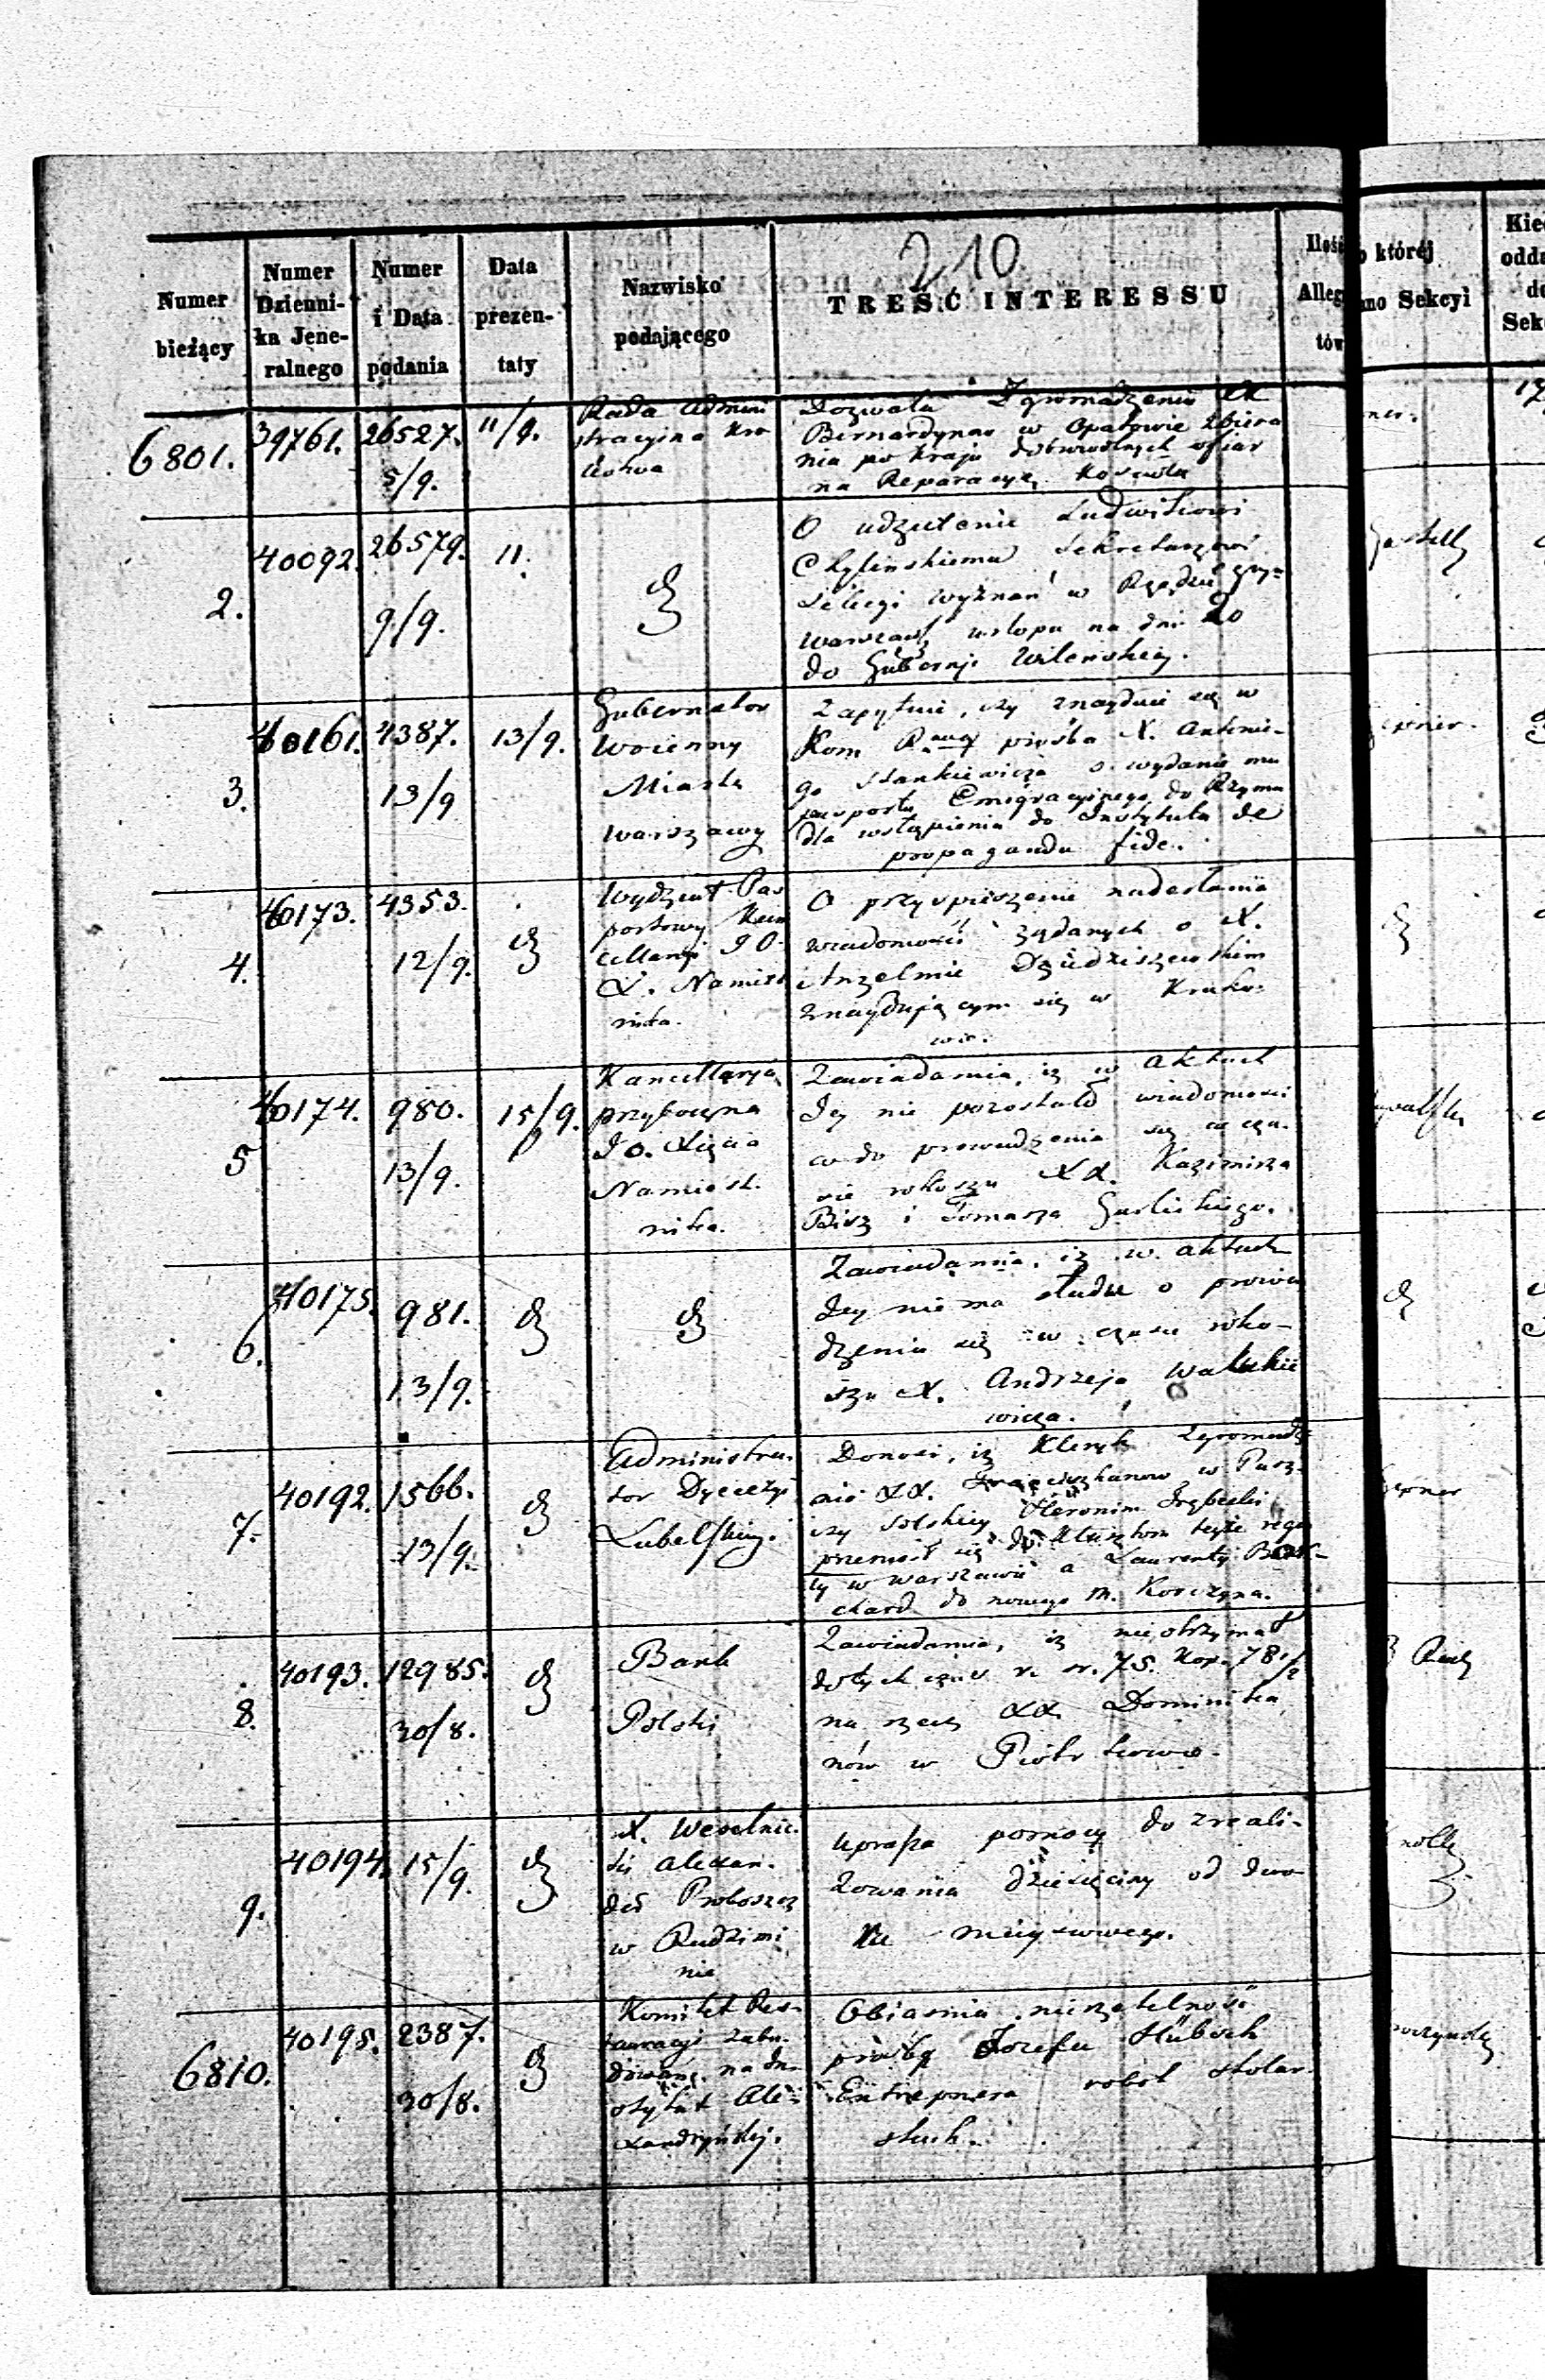 210
Numer bieżący
Numer Dzienni-
ka Jene-
ralnego
Numer i Data podania
Data prezen-
taty
Nazwisko podającego
TREŚĆ INTERESSU
Ilość
Alleg
tów
o której
no Sekcyi
6801.
39761.
26527.
5/9.
11/9.
Rada Admini
stracyina Kró
lestwa
Dozwala Zgromadzeniu XX
Bernardynów w Opatowie zbiera
nia po kraju dobrowolnych ofiar
na Reparacyę Kościoła
2.
40092.
26579.
9/9.
11.
O udzielenie Ludwikowi
Chylinskiemu Sekretarzowi
Sekcyi Wyznań w Rządzie
Warszaw urlopu na dni 20
do Gubernji Wileńskiej.
3.
40161.
4387.
13/9
13/9.
Gubernator
Woienny
Miasta
Warszawy
Zapytuie, czy znayduie się w
Kom prośba X. Antonie-
go Stankiewicza o wydanie mu
pasportu Emigracyjnego do Rzymu
dla wstąpienia do Instytutu de
propaganda fide.
4.
40173.
4353.
12/9.
Wydział Pas
portowy Kan
cellarji J O.
X. Namiest
nika.
O przyspieszenie nadesłania
wiadomości żądanych o X.
Anzelmie Dziedziszewskim
znaydującym się w Krako-
wie.
5
40174.
980.
13/9.
15/9.
Kancellarya
przyboczna
J O. Xięcia
Namiest.
nika.
Zawiadamia, iż w aktach
Jey nie pozostało wiadomości
co do prowadzenia się w cza-
sie rokoszu XX. Kazimirza
i Tomasza Garlickiego.
6.
40175.
981.
13/9.
Zawiadamia, iż w aktach
Jey nie ma śladu o prowa
dzeniu się w czasie roko-
szu X. Andrzeja Walukie
wicza.
7.
40192.
1566.
13/9.
Administra.
tor Dyecezyi
Lubelskiej.
Donosi, iż Kleryk Zgromadze
nia XX. Franciszkanów w Pusz-
czy Solskiey Hieronim
przeniosł się do Klasztoru teyże regu
ły w Warszawie a Laurenty
do nowego m. Korczyna.
8.
40193.
12985.
30/8.
Bank
Polski
Zawiadamia, iż nie otrzymał
dotychczas r. sr. 75. Kop. 78 1/2
na rzecz XX Dominika
nów w Piotrkowie.
9.
40194.
15/9.
X. Weselnic
ki Alexan.
der Proboszcz
w Radzimi
nie
Uprasza pomocy do zreali-
zowania dziesięciny od dwo-
ru mieyscowego.
6810.
40195.
2387.
30/8.
Komitet Res-
tauracyi Zabu.
dowań na
Ale-
xandryjskiej.
Obiasnia nierzetelność
prośby Jozefa Hübsch
Entreprnera robot stolar-
skich.